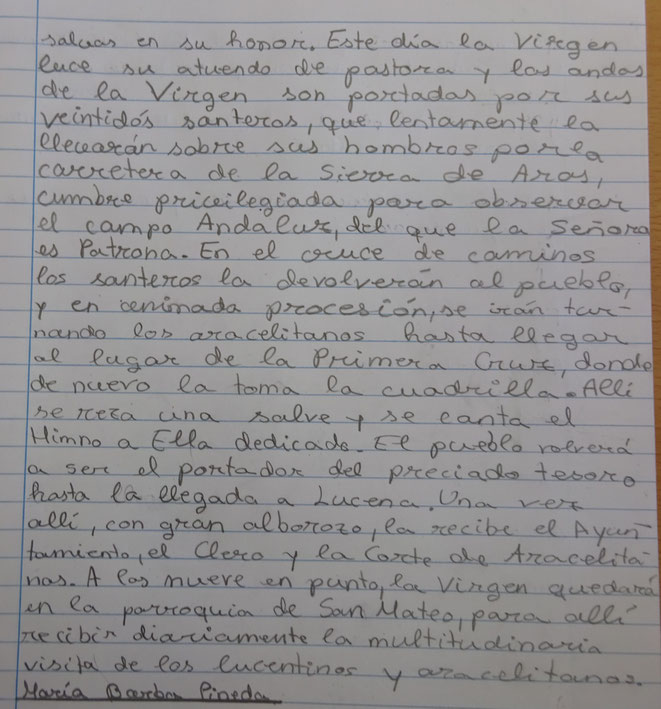 salvas en su honor. Este día la Virgen
luce su atuendo de pastora y las andas
de la Virgen son portadas por sus
veintidós santeros, que lentamente la
llevarán sobre sus hombros por la
carretera de la Sierra de Aras,
cumbre privilegiada para observar
el campo Andaluz, del que la Señora
es Patrona. En el cruce de caminos
los santeros la devolverán al pueblo,
y en animada procesión, se irán tur-
nando los aracelitanos hasta llegar
al lugar de la Primera Cruz, donde
de nuevo la toma la cuadrilla. Allí
se reza una salve y se canta el
Himno a Ella dedicado. El pueblo volverá
a ser el portador del preciado tesoro
hasta la llegada a Lucena. Una vez
allí, con gran alborozo, la recibe el Ayun-
tamiento, el Clero y la Corte de Aracelita-
nas. A las nueve en punto, la Virgen quedará
en la parroquia de San Mateo, para allí
recibir diariamente la multitudinaria
visita de los lucentinos y aracelitanos.
María Barba Pineda